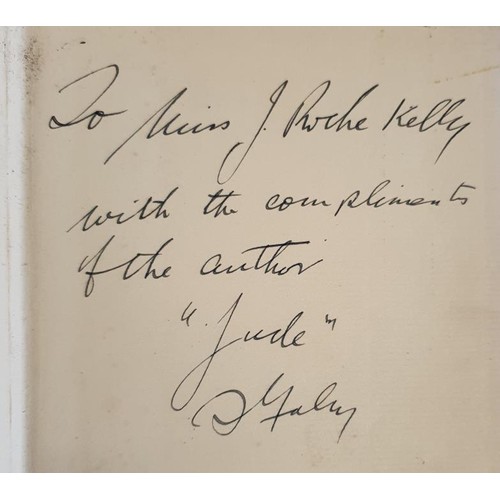 To Miss J. Roche Kelly
with the compliments
of the author
"Jude"